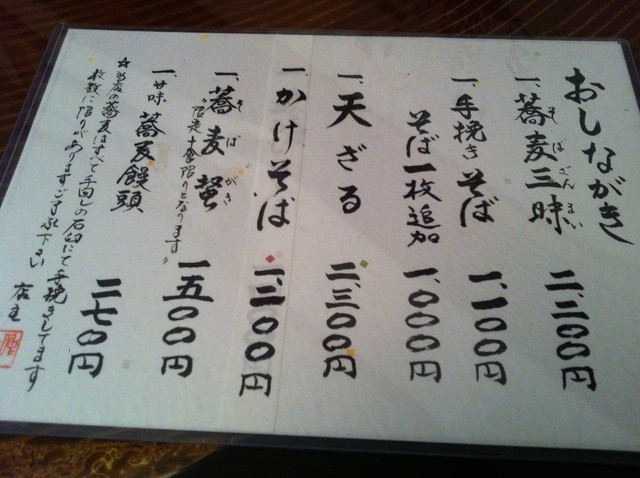 おしながき
一、蕎麦三昧 二、二〇〇円
そばざんまい
一、手挽きそば 一、一〇〇円
そば一枚追加 一、〇〇〇円
一、天ざる 二、三〇〇円
一、かけそば 一、二〇〇円
一、蕎麦 一五〇〇円
そばがき
"限定十食限りとなります"
一、甘味 蕎麦饅頭 二七〇円
☆当店の蕎麦はすべて手回しの石臼にて手挽きしてます
枚数に限りがありますご了承下さい 店主